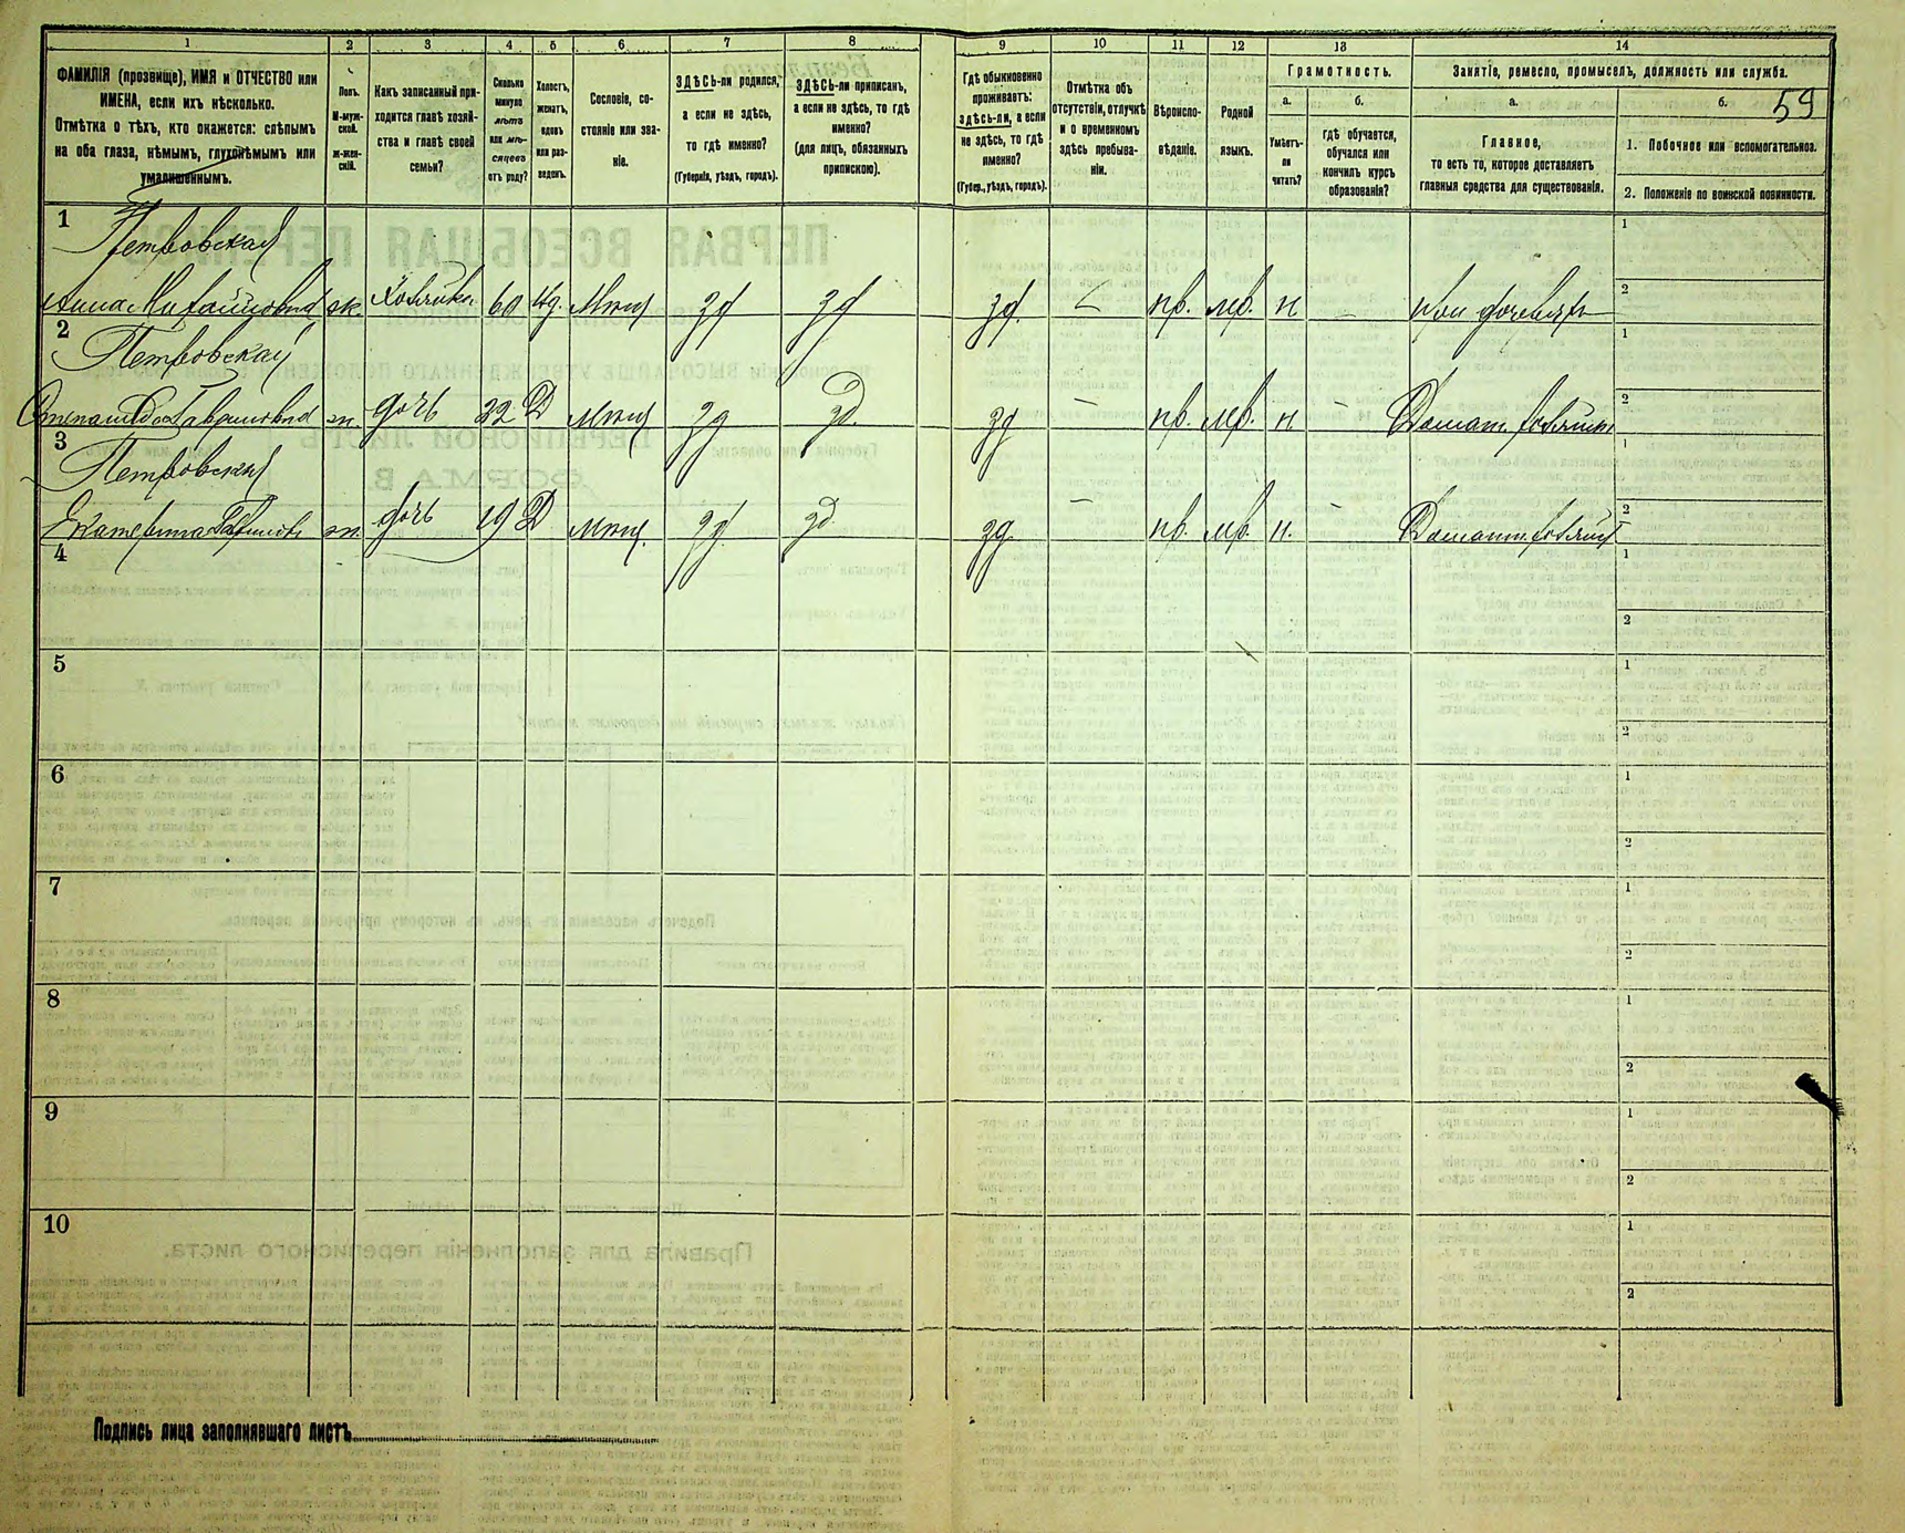 1 2 3 4 5 6 7 8 9 10 11 12 13 14
ФАМИЛІЯ (прозвище), ИМЯ и ОТЧЕСТВО или
ИМЕНА, если ихъ нѣсколько.
Отмѣтка о тѣхъ, кто окажется: слѣпымъ
на оба глаза, нѣмымъ, глухонѣмымъ или
умалишеннымъ.
Полъ.
М-муж-
ской.
ж-жен-
скій.
Какъ записанный при-
ходится главѣ хозяй-
ства и главѣ своей
семьи?
Сколько
минуло
лѣтъ
или мѣ-
сяцевъ
отъ роду?
Холостъ,
женатъ,
вдовъ
или раз-
веденъ.
Сословіе, со-
стояніе или зва-
ніе.
ЗДѢСЬ-ли родился,
а если не здѣсь,
то гдѣ именно?
(Губернія, уѣздъ, городъ).
ЗДѢСЬ-ли приписан,
а если не здѣсь, то гдѣ
именно?
(для лицъ, обязанныхъ
припискою).
Гдѣ обыкновенно
проживаетъ:
здѣсь-ли, а если
не здѣсь, то гдѣ
именно?
(Губер., уѣздъ, городъ).
Отмѣтка объ
отсутствіи, отлучкѣ
и о временномъ
здѣсь пребыва-
ніи.
Вѣроиспо-
вѣданіе.
Родной
языкъ.
Грамотность.
а.
Умѣетъ-
ли
читать?
б.
гдѣ обучается,
обучался или
кончилъ курсъ
образованія?
Занятіе, ремесло, промыселъ, должность или служба.
а.
Главное,
то есть то, которое доставляетъ
главныя средства для существованія.
б.
59
1. Побочное или вспомогательное.
2. Положеніе по воинской повинности.
1 Петровская 1
Анна Михайловна ж. Хозяйка 60 вд. Мѣщ зд зд зд. — пр. мр. н — при дочеряхъ 2
2 Петровская 1
Гавриловна ж. дочь 22 Д мѣщ зд зд. зд — пр. мр. н. — Домашн. хозяйка 2
3 Петровская 1
Екатерина ж. дочь 19 Д мѣщ. зд зд. зд — пр. мр. н. — Домашн. хозяйка 2
4 1
2
5 1
2
6 1
2
7 1
2
8 1
2
9 1
2
10 1
2
Подпись лица заполнявшаго листъ